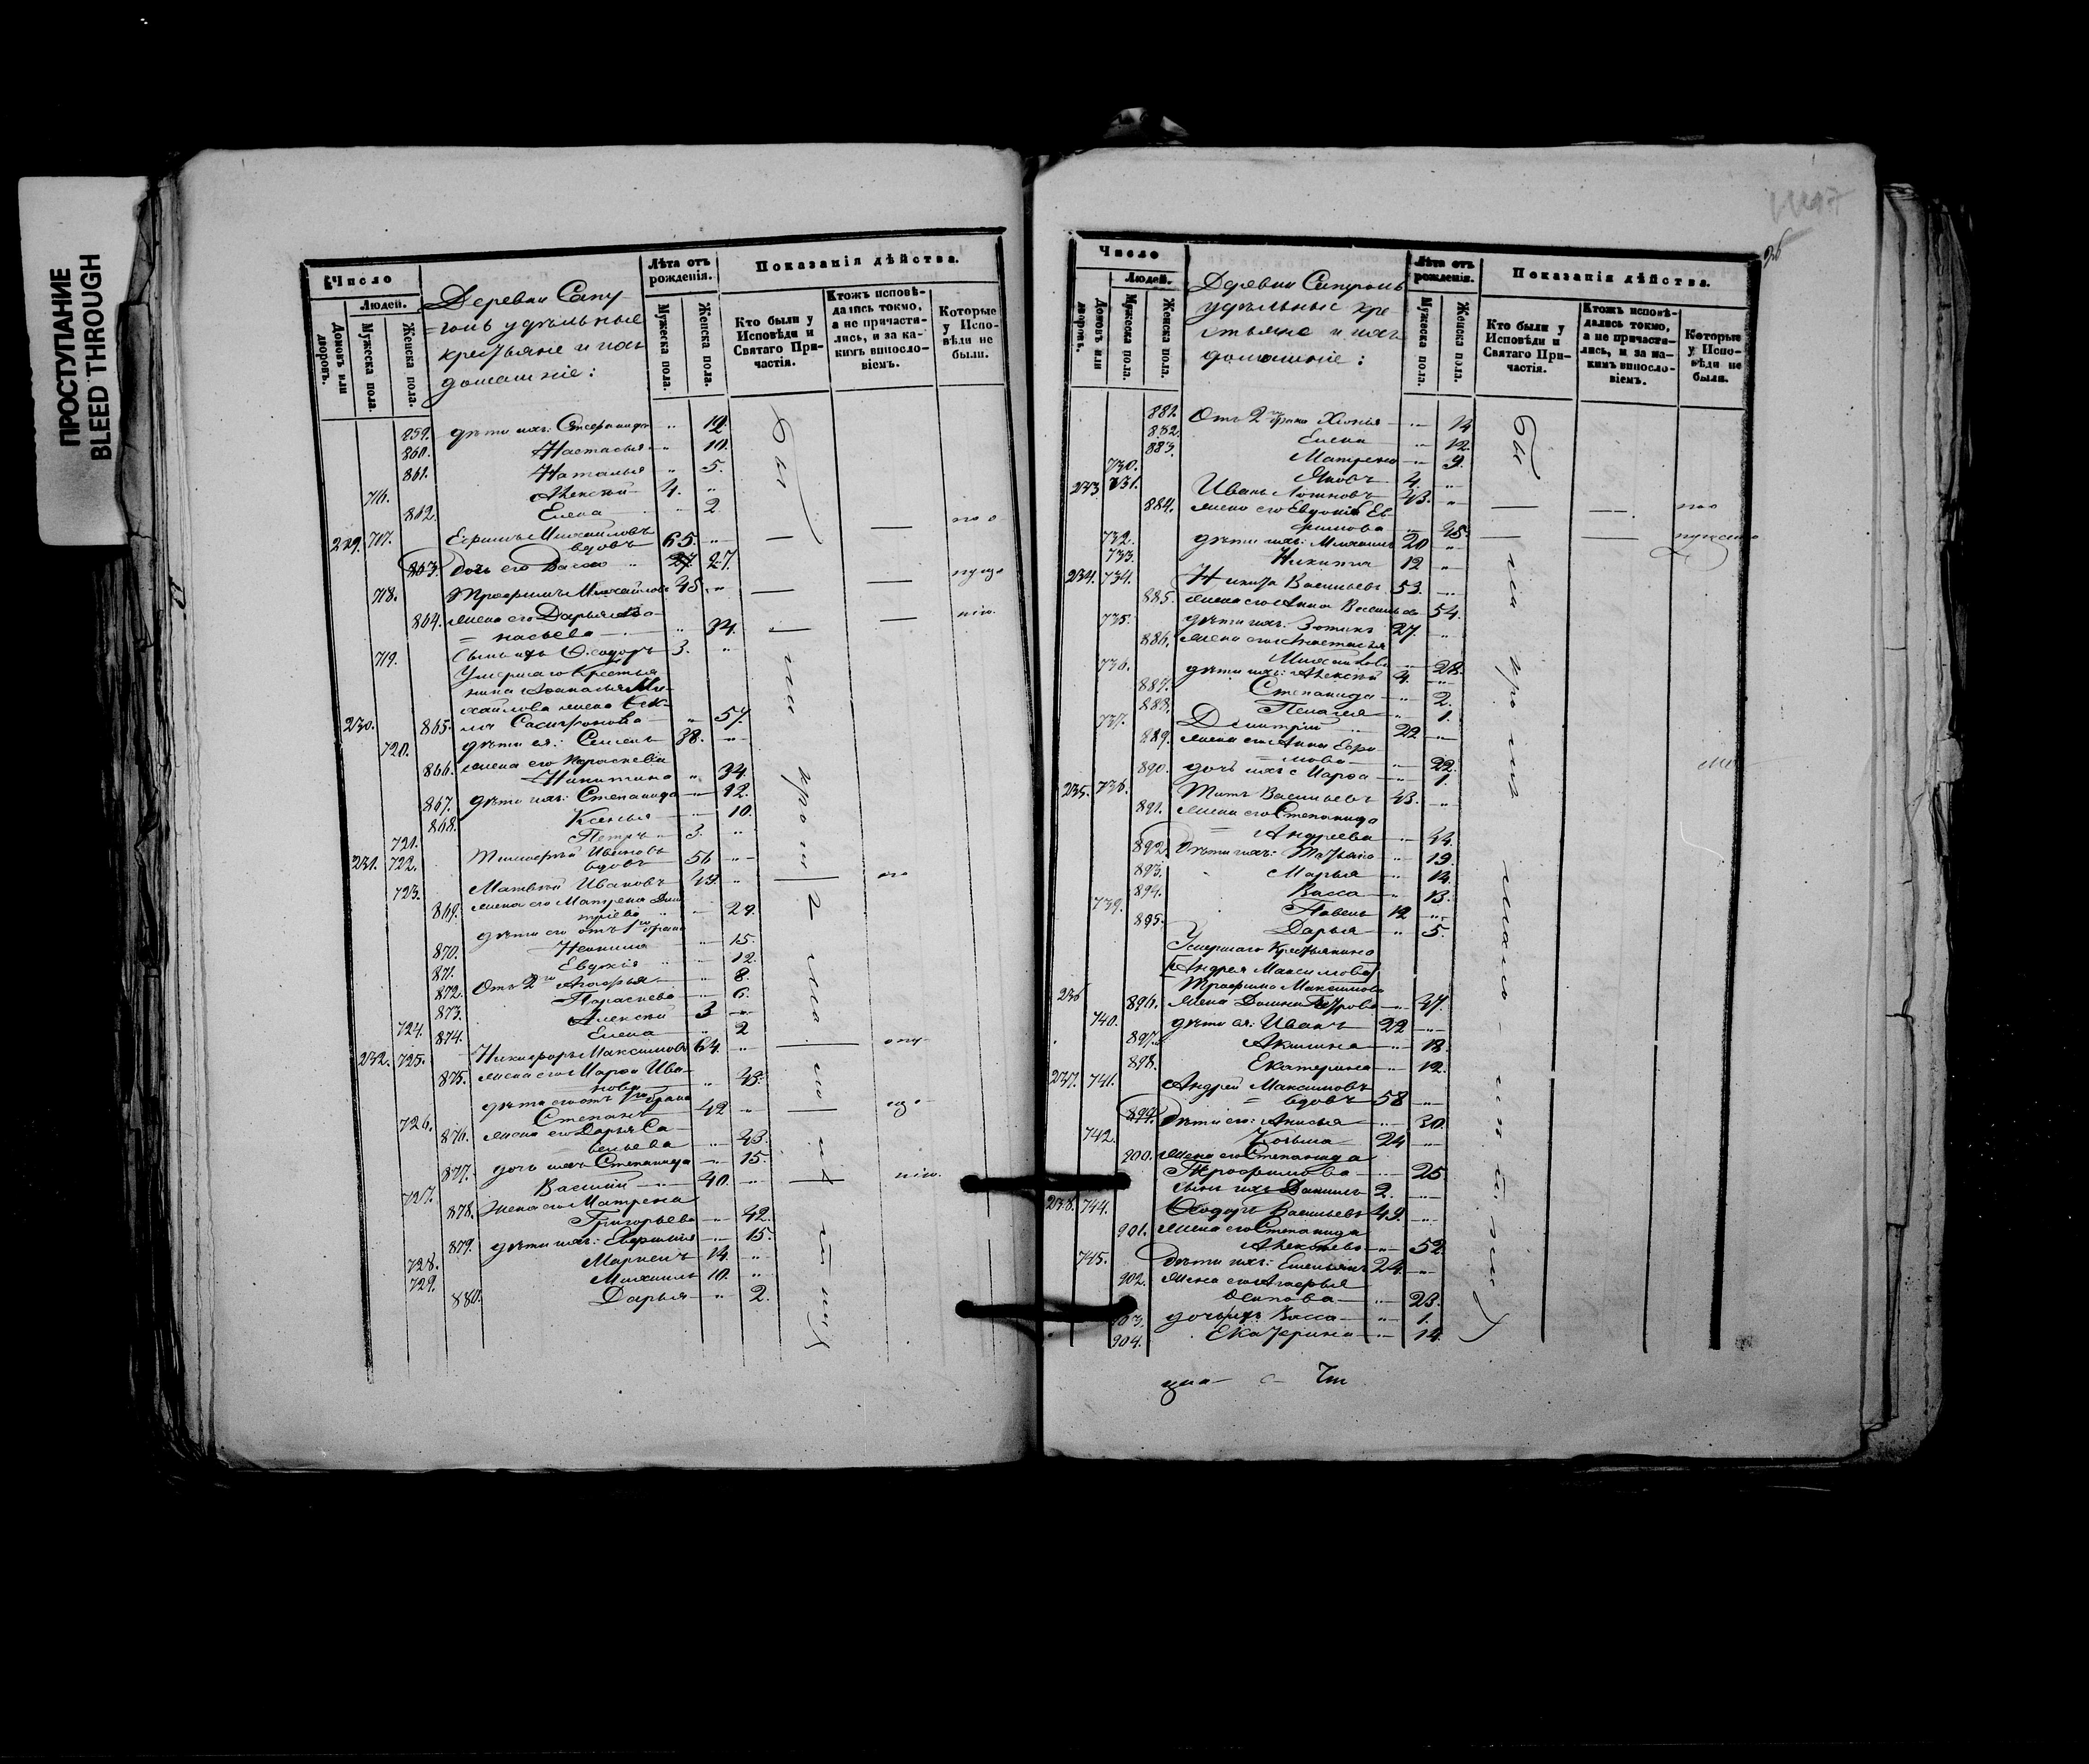 ПРОСТУПАНИЕ
BLEED THROUGH
Число
Людей.
Домовъ или дворовъ.
Мужеска пола.
Женска пола.
Деревни Сапу-
=голь удѣльные
крестьяне и ихъ
домашніе:
Лѣта отъ рожденія.
Мужеска пола.
Женска пола.
Показанія дѣйства.
Кто были у Исповѣди и Святаго Причастія.
Ктожъ исповѣдались токмо, а не причастились, и за какимъ винословіемъ.
Которые у Исповѣди не были.
859. дѣти ихъ: 12.
860. Настасья 10.
861. Наталья 5.
716. Алексѣй 4.
862. Елена 2
229. 717. Ефимъ Михайловъ
вдовъ 65.
863. дочь его Васса 27.
718. Трофимъ Михайловъ 45
864. жена его Дарья Афа-
=насьева 34.
719. сынъ ихъ Ѳеодоръ 3.
Умершаго крестья-
нина Афанасья Ми-
хайлова жена
230. 865. 57.
720. дѣти ея: Семенъ 38.
866. жена его Параскева
Никитина 34.
867. дѣти ихъ: Степанида 12.
868. Ксенья 10.
721. Петръ 3.
231. 722. Тимофей Ивановъ
вдовъ 56
723. Матвѣй Ивановъ 49.
869. жена его Матрена Дми
тріева 29.
дѣти его отъ 1го брака
870. Неонила 15.
871. Евдокія 12.
872. Отъ 2го Агафья 8.
873. Параскева 6.
724. Алексѣй 3
874. Елена 2
232. 725. Никифоръ Максимовъ 64.
875. жена его Марфа Ива-
нова 43.
дѣти его отъ 1го брака
726. Степанъ 42
876. жена его Дарья Са-
вельева 43.
877. дочь ихъ Степанида 15.
727. Василій 40.
878. Жена его Матрена
Григорьева 42.
879. дѣти ихъ: Евфимія 15.
728. Маркелъ 14.
729. Михаилъ 10.
880. Дарья 2.
Число
Людей.
Домовъ или дворовъ.
Мужеска пола.
Женска пола.
Деревни
удѣльные кре
стьяне и ихъ
домашніе:
Лѣта отъ рожденія.
Мужеска пола.
Женска пола.
Показанія дѣйства.
Кто были у Исповѣди и Святаго Причастія.
Ктожъ исповѣдались токмо, а не причастились, и за какимъ винословіемъ.
Которые у Исповѣди не были.
Отъ 2го брака Хіонья 14
882. Елена 12.
883. Матрена 9.
730. Яковъ 4.
233 731. Иванъ Логиновъ 43.
884. жена его Евдокія Ев-
фимова 45.
732. дѣти ихъ: Михаилъ 20
733. Никита 12
234. 734. Никита Васильевъ 53.
885. жена его Анна Васильева 54.
735. дѣти ихъ: Зотикъ 27.
886. жена его Анастасья
Михайлова 28.
736. дѣти ихъ: Алексѣй 4.
887. Степанида 2.
888. Пелагея 1.
737. Дмитрій 22
889. жена его Анна Ефи-
=мова 22.
890. дочь ихъ Марфа 1.
235. 738. Титъ Васильевъ 43.
891. жена его Степанида
Андреева 44.
892. Дѣти ихъ: Татьяна 19.
893. Марья 14.
894. Васса 13.
739. Павелъ 12
895. Дарья 5.
Умершаго крестьянина
[Андрея Максимова]
Трофима Максимова
236 896. жена Домна Петрова 47.
740. дѣти ея: Иванъ 22
897. Акилина 18.
898. Екатерина 12.
237. 741. Андрей Максимовъ
= вдовъ 58
899. Дѣти его: Анисья 30.
742. Козьма 24
900. Жена его Степанида
Трофимова 25
сынъ ихъ Даніилъ 2.
238. 744. Ѳеодоръ Васильевъ 49.
901. жена его Степанида
Алексѣева 52.
745. Дѣти ихъ: Емельянъ 24.
902. жена его Агафья
Осипова 23.
903. дочь ихъ Васса 1.
904. Екатерина 14.